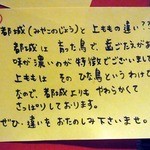 都城(みやこのじょう)と上ももの違い??
都城は育った鳥で、歯ごたえがあり
味が濃いのが特徴でございます。
上ももは そのひな鳥という わけで
なので、都城よりも やわらかくて
さっぱりしております。
ぜひ違いをおたのしみ下さいませ。